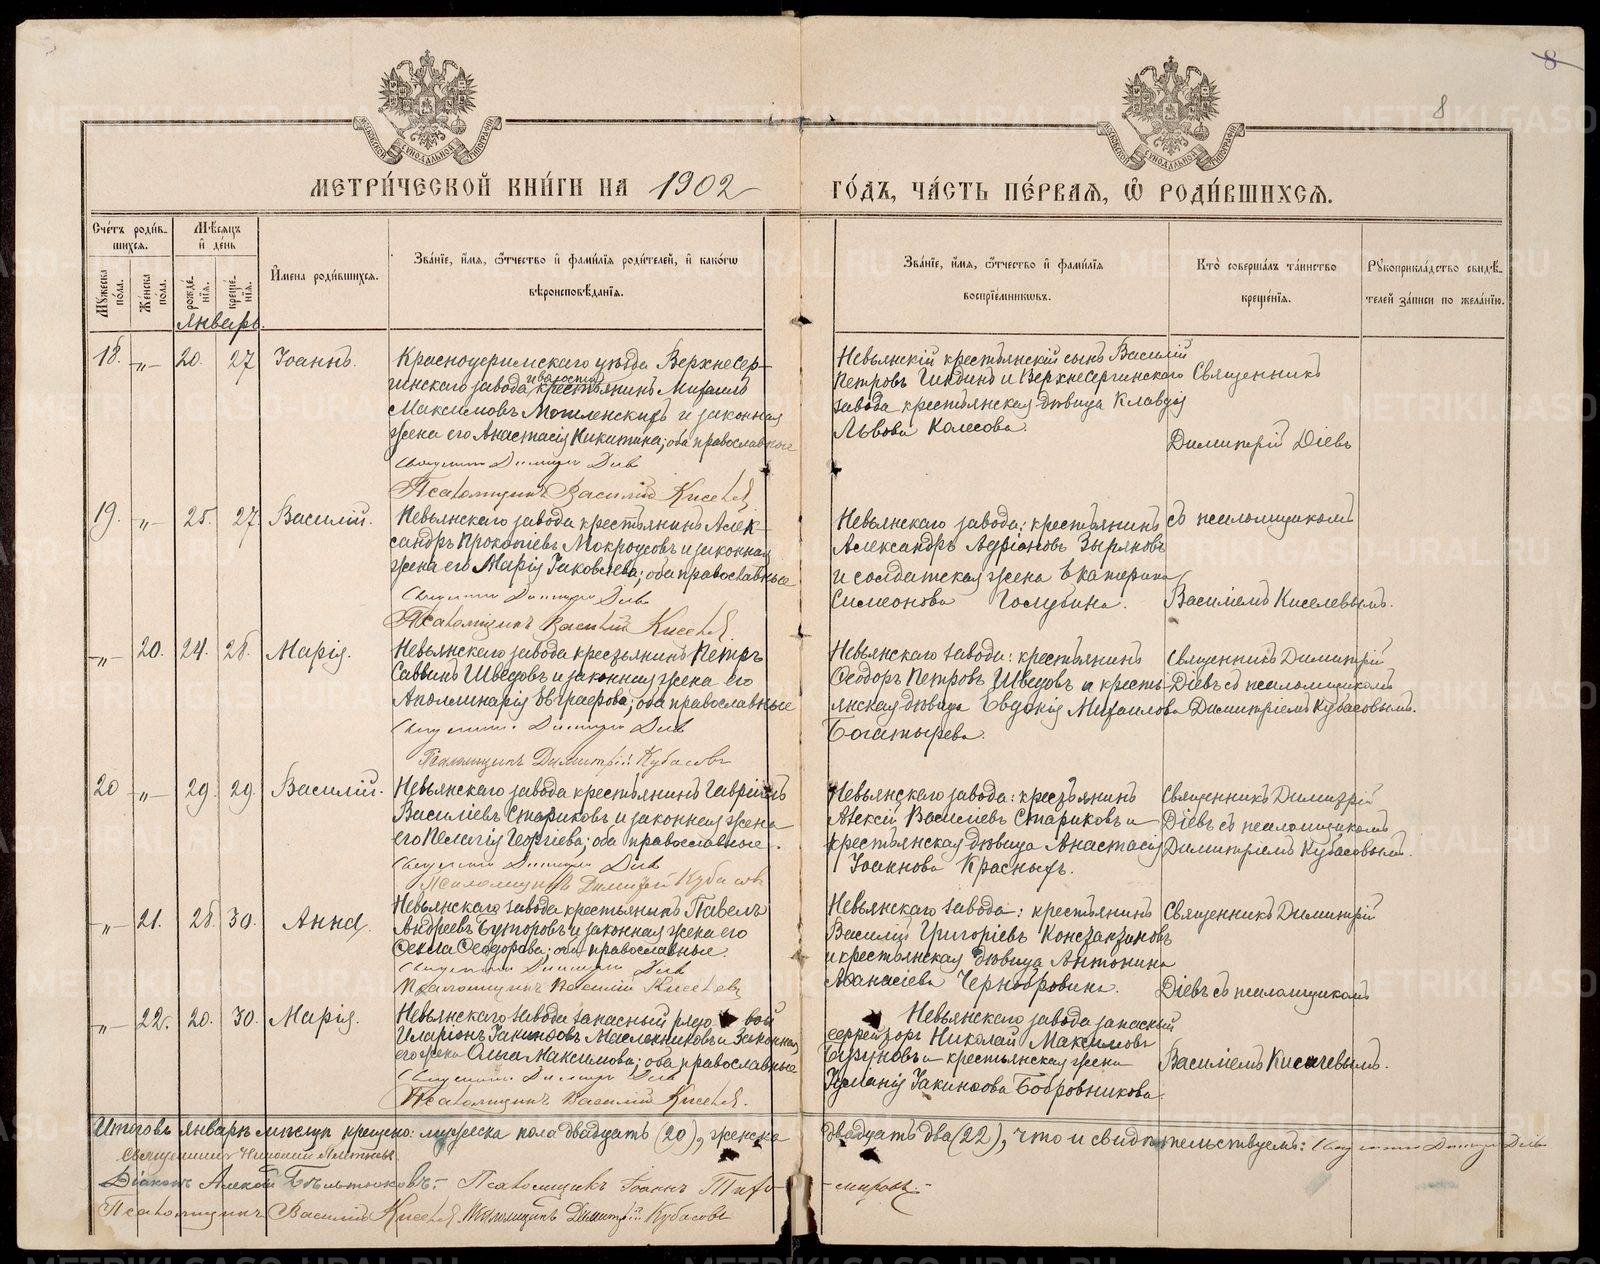 8
8
МЕТРИ́ЧЕСКОЙ КНИ́ГИ НА 1902
ГО́ДЪ, ЧА́СТЬ ПЕ́РВАЯ, Ѿ РОДИ́ВШИХСЯ.
Сче́тъ роди́в-
шихся.
Мѣ́сяцъ
и҆ де́нь
И҆мена роди́вшихся.
Зва́нїе, и҆́мя, ѻ҆́тчество и҆ фами́лїя роди́телей, и҆ како́гѡ
вѣроисповѣ́данїя.
Зва́нїе, и҆́мя, ѻ҆́тчество и҆ фами́лїя
воспрїе́мникѡвъ.
Кто̀ соверша́лъ та́инство
креще́нїя.
Рꙋкоприкла́дство свидѣ́-
телей за́писи по жела́нїю.
Мꙋ́жеска по́ла.
Же́нска по́ла.
рожде́-
нїя.
креще́-
нїя.
Январь.
18. -„- 20. 27 Іоаннъ.
Красноуфимскаго уѣзда Верхнесер-
гинскаго завода и волости крестьянинъ Михаилъ
Максимовъ и законная
жена его Анастасія Никитина; оба православные
Священникъ Димитрій Діевъ
Псаломщикъ Василій Киселевъ
Невьянскій крестьянскій сынъ Василій
Петровъ и Верхнесергинскаго
завода крестьянская дѣвица Клавдія
Львова Колесова.
Священникъ
Димитрій Діевъ
19. -„- 25. 27. Василій.
Невьянскаго завода крестьянинъ Алек-
сандръ Прокопіевъ Мокроусовъ и законная
жена его Марія Іаковлева; оба православные
Священникъ Димитрій Діевъ
Псаломщикъ Василій Киселевъ.
Невьянскаго завода: крестьянинъ
Александръ Адріановъ Зыряновъ
и солдатская жена Екатерина
Симеонова Голубина.
съ псаломщикомъ
Василіемъ Киселевымъ.
-„- 20. 24. 28. Марія.
Невьянскаго завода крестьянинъ Петръ
Саввинъ Шведовъ и законная жена его
Аполлинарія Евграфова; оба православные
Священникъ Димитрій Діевъ
Псаломщикъ Димитрій Кубасовъ
Невьянскаго завода: крестьянинъ
Ѳеодоръ Петровъ Шведовъ и кресть-
янская дѣвица Евдокія Михаилова
Богатырева.
Священникъ Димитрій
Діевъ съ псаломщикомъ
Димитріемъ Кубасовымъ.
20 -„- 29. 29. Василій.
Невьянскаго завода крестьянинъ Гавріилъ
Василіевъ Стариковъ и законная жена
его Пелагія Георгіева; оба православные.
Священникъ Димитрій Діевъ
Псаломщикъ Димитрій Кубасовъ
Невьянскаго завода: крестьянинъ
Алексій Василіевъ Стариковъ и
крестьянская дѣвица Анастасія
Іоаннова Красныхъ.
Священникъ Димитрій
Діевъ съ псаломщикомъ
Димитріемъ Кубасовымъ.
-„- 21. 28. 30. Анна.
Невьянскаго завода крестьянинъ Павелъ
Андреевъ Буторовъ и законная жена его
Ѳекла Ѳеодорова; оба православные.
Священникъ Димитрій Діевъ
Псаломщикъ Василій Киселевъ
Невьянскаго завода: крестьянинъ
Василій Григоріевъ Константиновъ
и крестьянская дѣвица Антонина
Аѳанасіева Чернобровина.
Священникъ Димитрій
Діевъ съ псаломщикомъ
-„- 22. 20. 30. Марія.
Невьянскаго завода запасный рядовой
Иларіонъ Іакинѳовъ Масленниковъ и законная
его жена Ольга Максимова; оба православные
Священникъ Димитрій Діевъ
Псаломщикъ Василій Киселевъ.
Невьянскаго завода запасный
Николай Максимовъ
и крестьянская жена
Іуліанія Іакинѳова Бобровникова.
Василіемъ Киселевымъ.
Итого въ Январѣ мѣсяцѣ крещено: мужеска пола двадцать (20), женска
двадцать два (22), что и свидѣтельствуемъ: Священникъ Димитрій Діевъ
Священникъ
Діаконъ Алексій Псаломщикъ Іоаннъ Тихо-
-мировъ.-
Псаломщикъ Василій Киселевъ. Псаломщикъ Димитрій Кубасовъ